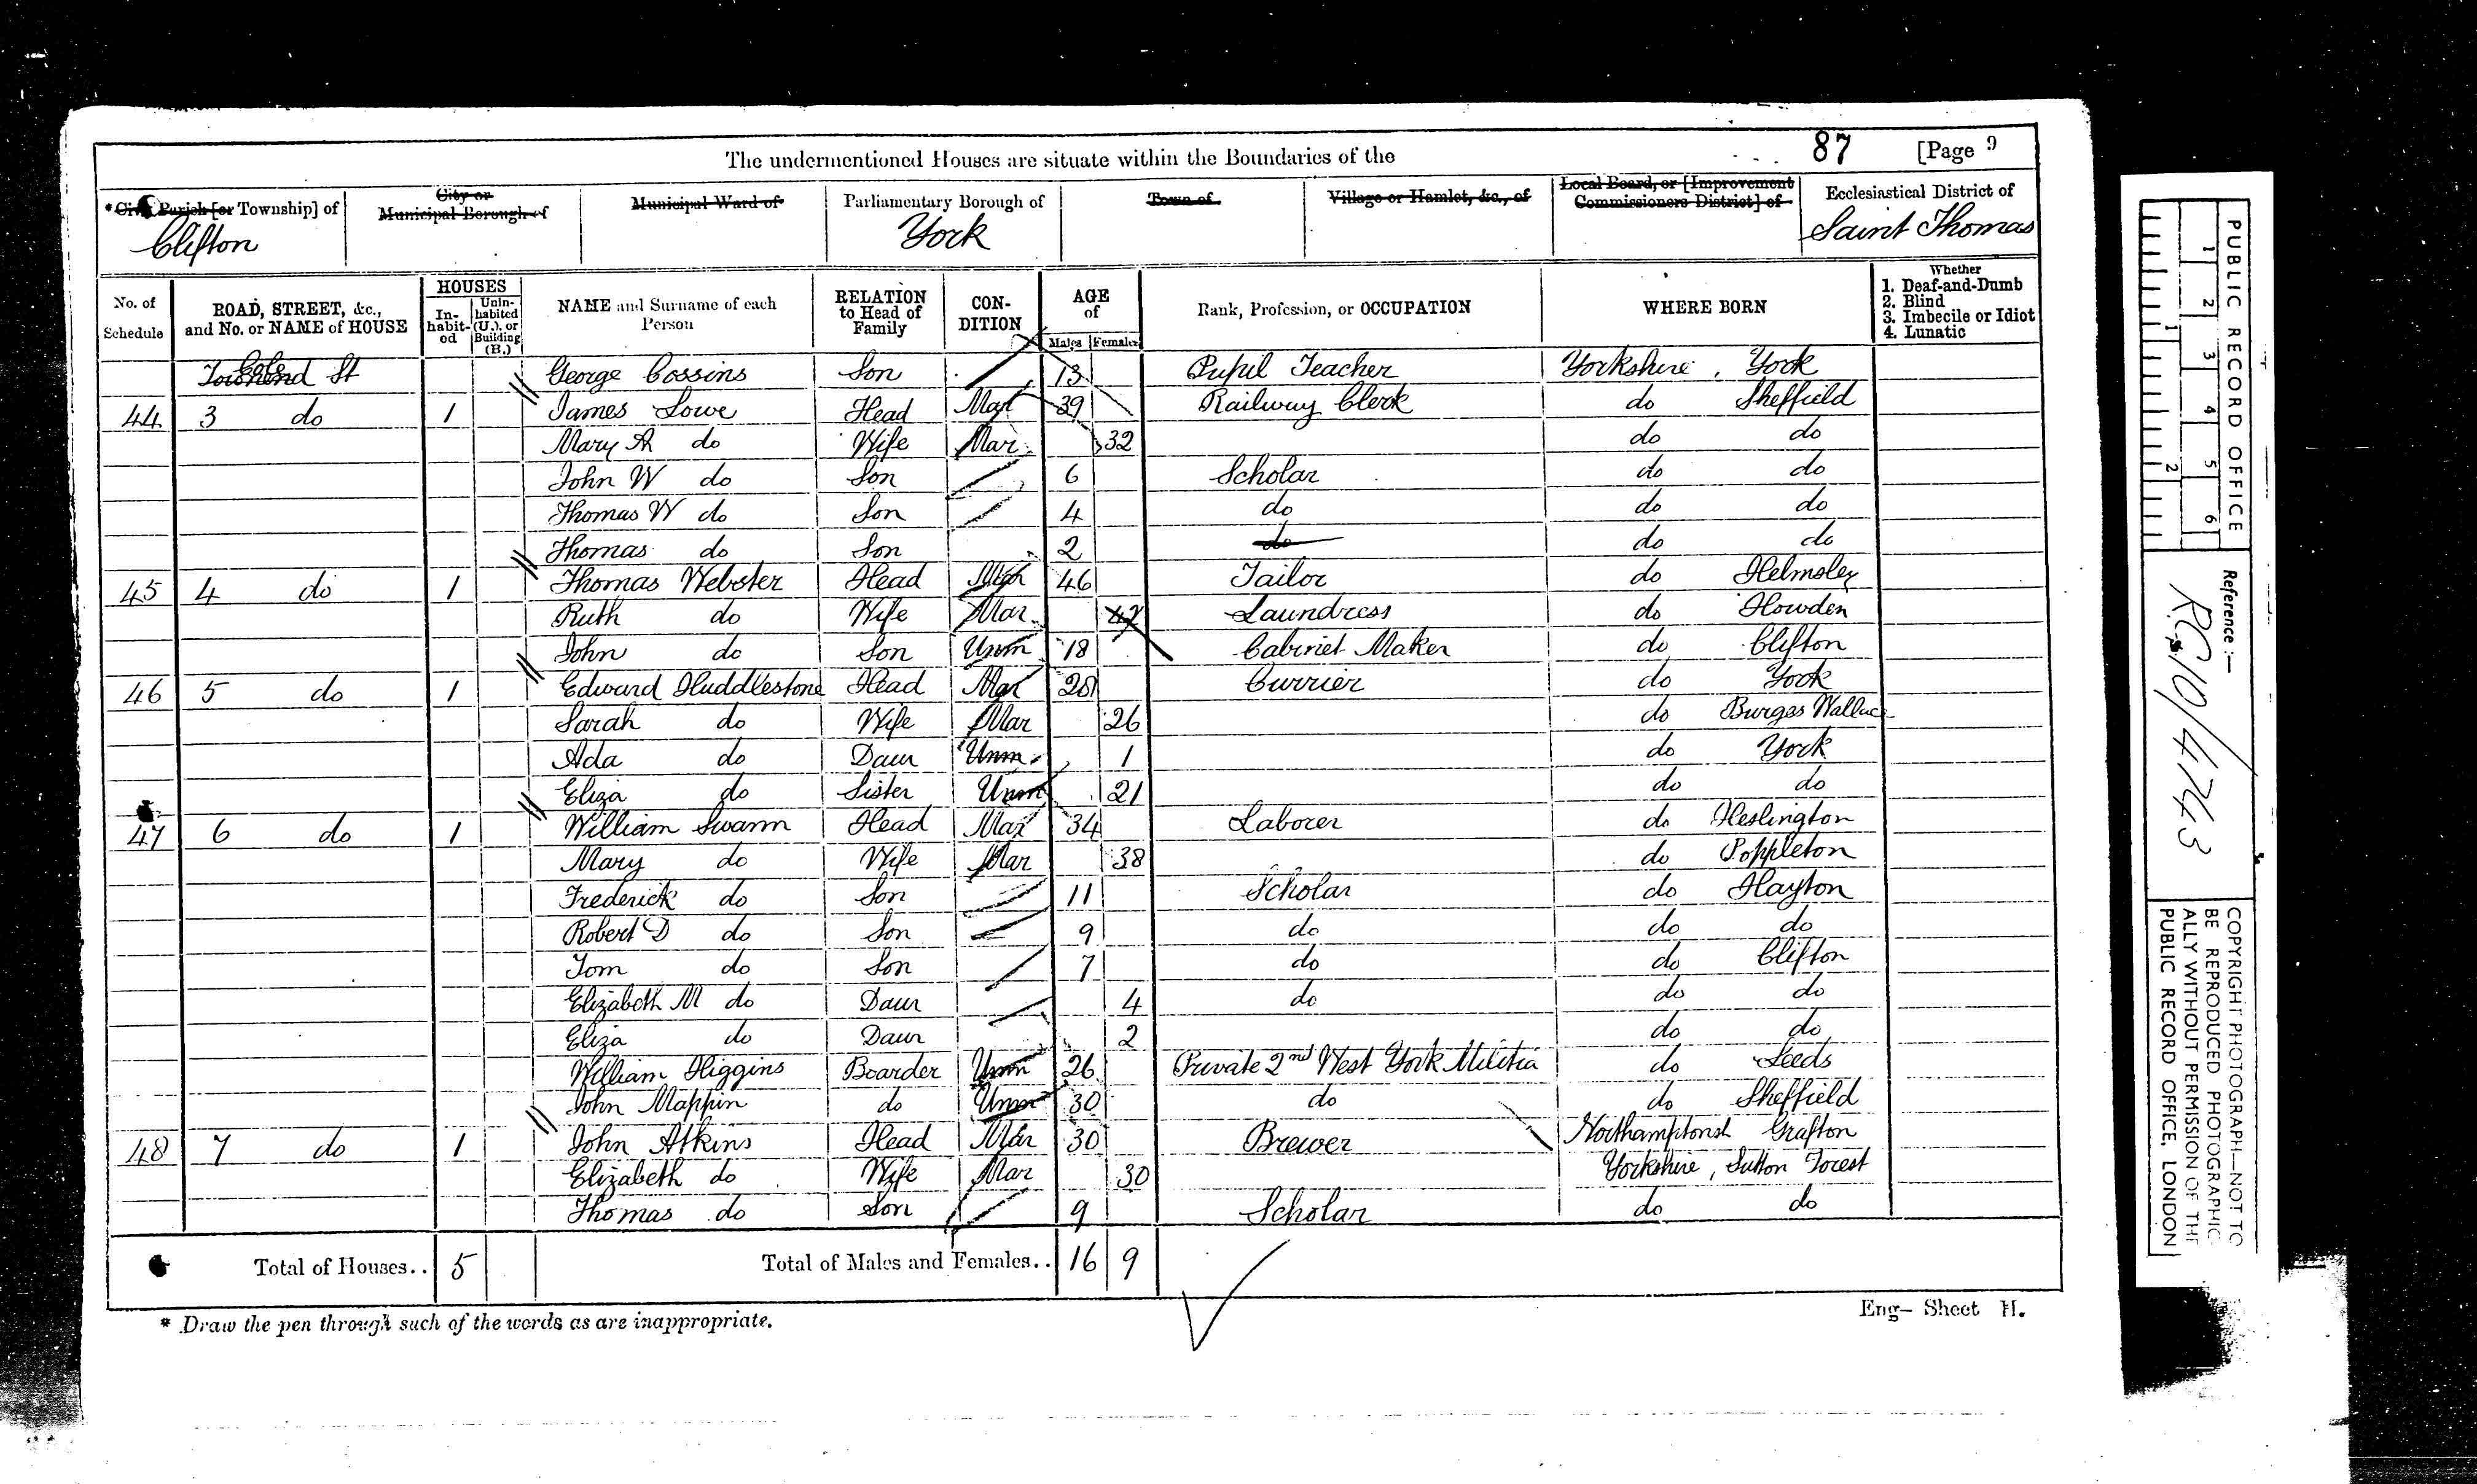 The undermentioned Houses are situate within the Boundaries of the 87 [Page 9
*Civil Parish [or Township] of Clifton
City or Municipal Borough of
Municipal Ward of
Parliamentary Borough of York
Town of
Village or Hamlet, &c., of
Local Board, or [Improvement Commissioners District] of
Ecclesiastical District of Saint Thomas
No. of Schedule
ROAD, STREET, &c., and No. or NAME of HOUSE
HOUSES
In-habit-ed
Unin-habited (U.), or Building (B.)
NAME and Surname of each Person
RELATION to Head of Family
CON-DITION
AGE of
Males Females
Rank, Profession, or OCCUPATION
WHERE BORN
Whether
1. Deaf-and-Dumb
2. Blind
3. Imbecile or Idiot
4. Lunatic
Townend St George Cossins Son 13 Pupil Teacher Yorkshire, York
44 3 do 1 James Lowe Head Mar 39 Railway Clerk do Sheffield
Mary A do Wife Mar 32 do do
John W do Son 6 Scholar do do
Thomas W do Son 4 do do do
Thomas do Son 2 do do do
45 4 do 1 Thomas Webster Head Mar 46 Tailor do Helmsley
Ruth do Wife Mar 47 Laundress do Howden
John do Son Unm 18 Cabinet Maker do Clifton
46 5 do 1 Edward Huddlestone Head Mar Currier do York
Sarah do Wife Mar 26 do Burges Wallace
Ada do Daur Unm 1 do York
Eliza do Sister Unm 21 do do
47 6 do 1 William Swann Head Mar 34 Laborer do Heslington
Mary do Wife Mar 38 do Poppleton
Frederick do Son 11 Scholar do Hayton
Robert D do Son 9 do do do
Tom do Son 7 do do Clifton
Elizabeth M do Daur 4 do do do
Eliza do Daur 2 do do
William Higgins Boarder Unm 26 Private 2nd West York Militia do Leeds
John Mappin do Unm 30 do do Sheffield
48 7 do 1 John Atkins Head Mar 30 Brewer Northamptonsh Grafton
Elizabeth do Wife Mar 30 Yorkshire, Sutton Forest
Thomas do Son 9 Scholar do do
Total of Houses.. 5 Total of Males and Females.. 16 9
* Draw the pen through such of the words as are inappropriate.
Eng- Sheet H.
PUBLIC RECORD OFFICE
1 2 3 4 5 6
1 2
Reference:-
R.G. 10/4743
COPYRIGHT PHOTOGRAPH—NOT TO
BE REPRODUCED PHOTOGRAPHIC-
ALLY WITHOUT PERMISSION OF THE
PUBLIC RECORD OFFICE, LONDON